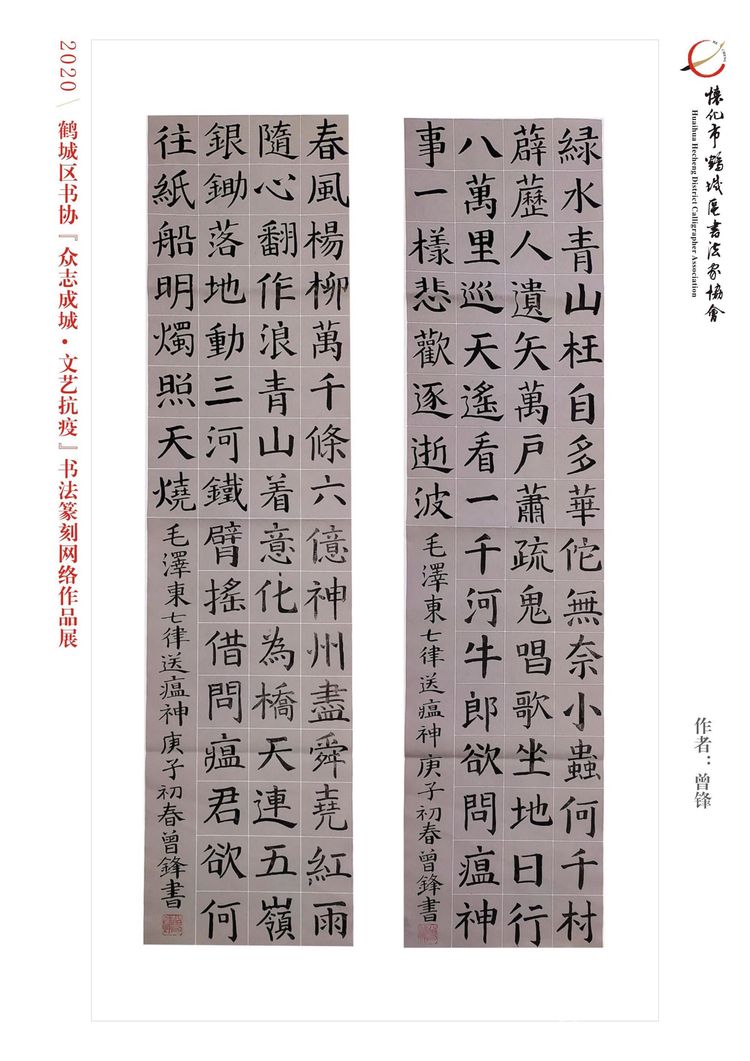 懷化市鶴城區書法家協會
Huaihua Hecheng District Calligrapher Association
緑水青山枉自多華佗無奈小蟲何千村
薜藶人遺矢萬戶蕭疏鬼唱歌坐地日行
八萬里巡天遙看一千河牛郎欲問瘟神
事一樣悲歡逐逝波
毛澤東七律送瘟神庚子初春曾鋒書
春風楊柳萬千條六億神州盡舜堯紅雨
隨心翻作浪青山着意化為橋天連五嶺
銀鋤落地動三河鐵臂搖借問瘟君欲何
往紙船明燭照天燒
毛澤東七律送瘟神庚子初春曾鋒書
作者：曾锋
2020 \ 鹤城区书协『众志成城·文艺抗疫』书法篆刻网络作品展